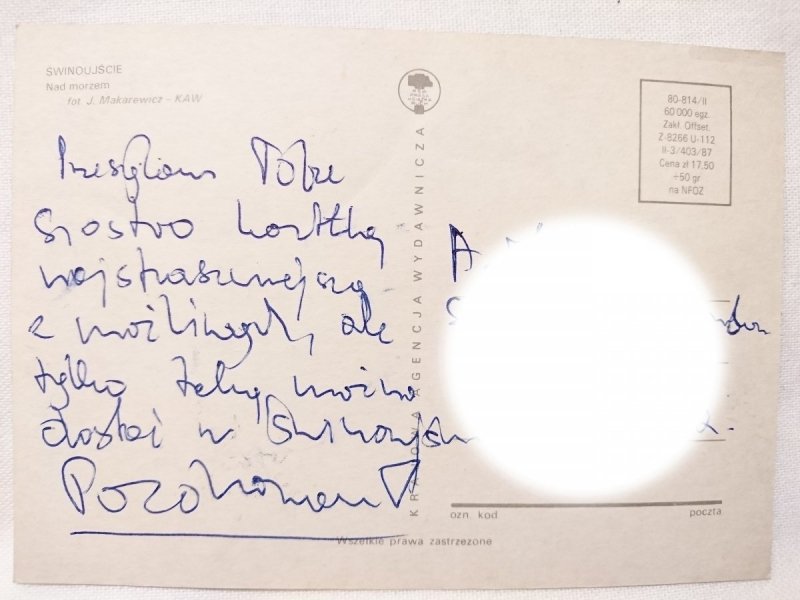 ŚWINOUJŚCIE
Nad morzem
fot. J. Makarewicz – KAW
KRAJOWA AGENCJA WYDAWNICZA
80-814/II
60 000 egz.
Zakł. Offset.
Z-8266 U-112
II-3/403/87
Cena zł 17,50
+50 gr
na NFOZ
Przesyłam Tobie
Siostro kartkę
najstraszniejszą
z możliwych, ale
tylko taką można
dostać w Świnoujściu
ozn. kod
poczta
Wszelkie prawa zastrzeżone